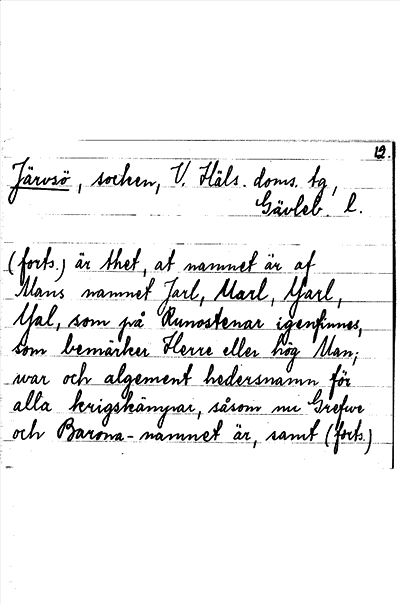 12.
Järvsö, socken, V. Häls. doms. tg,
Gävleb. l.
(forts.) är thet, at namnet är af
Mans namnet Jarl, Uarl, Yarl,
Yal, som på Runostenar igenfinnes,
som bemärker Herre eller hög Man;
war och algement hedersnamn för
alla krigskämpar, såsom nu Grefwe
och Barona-namnet är, samt (forts.)